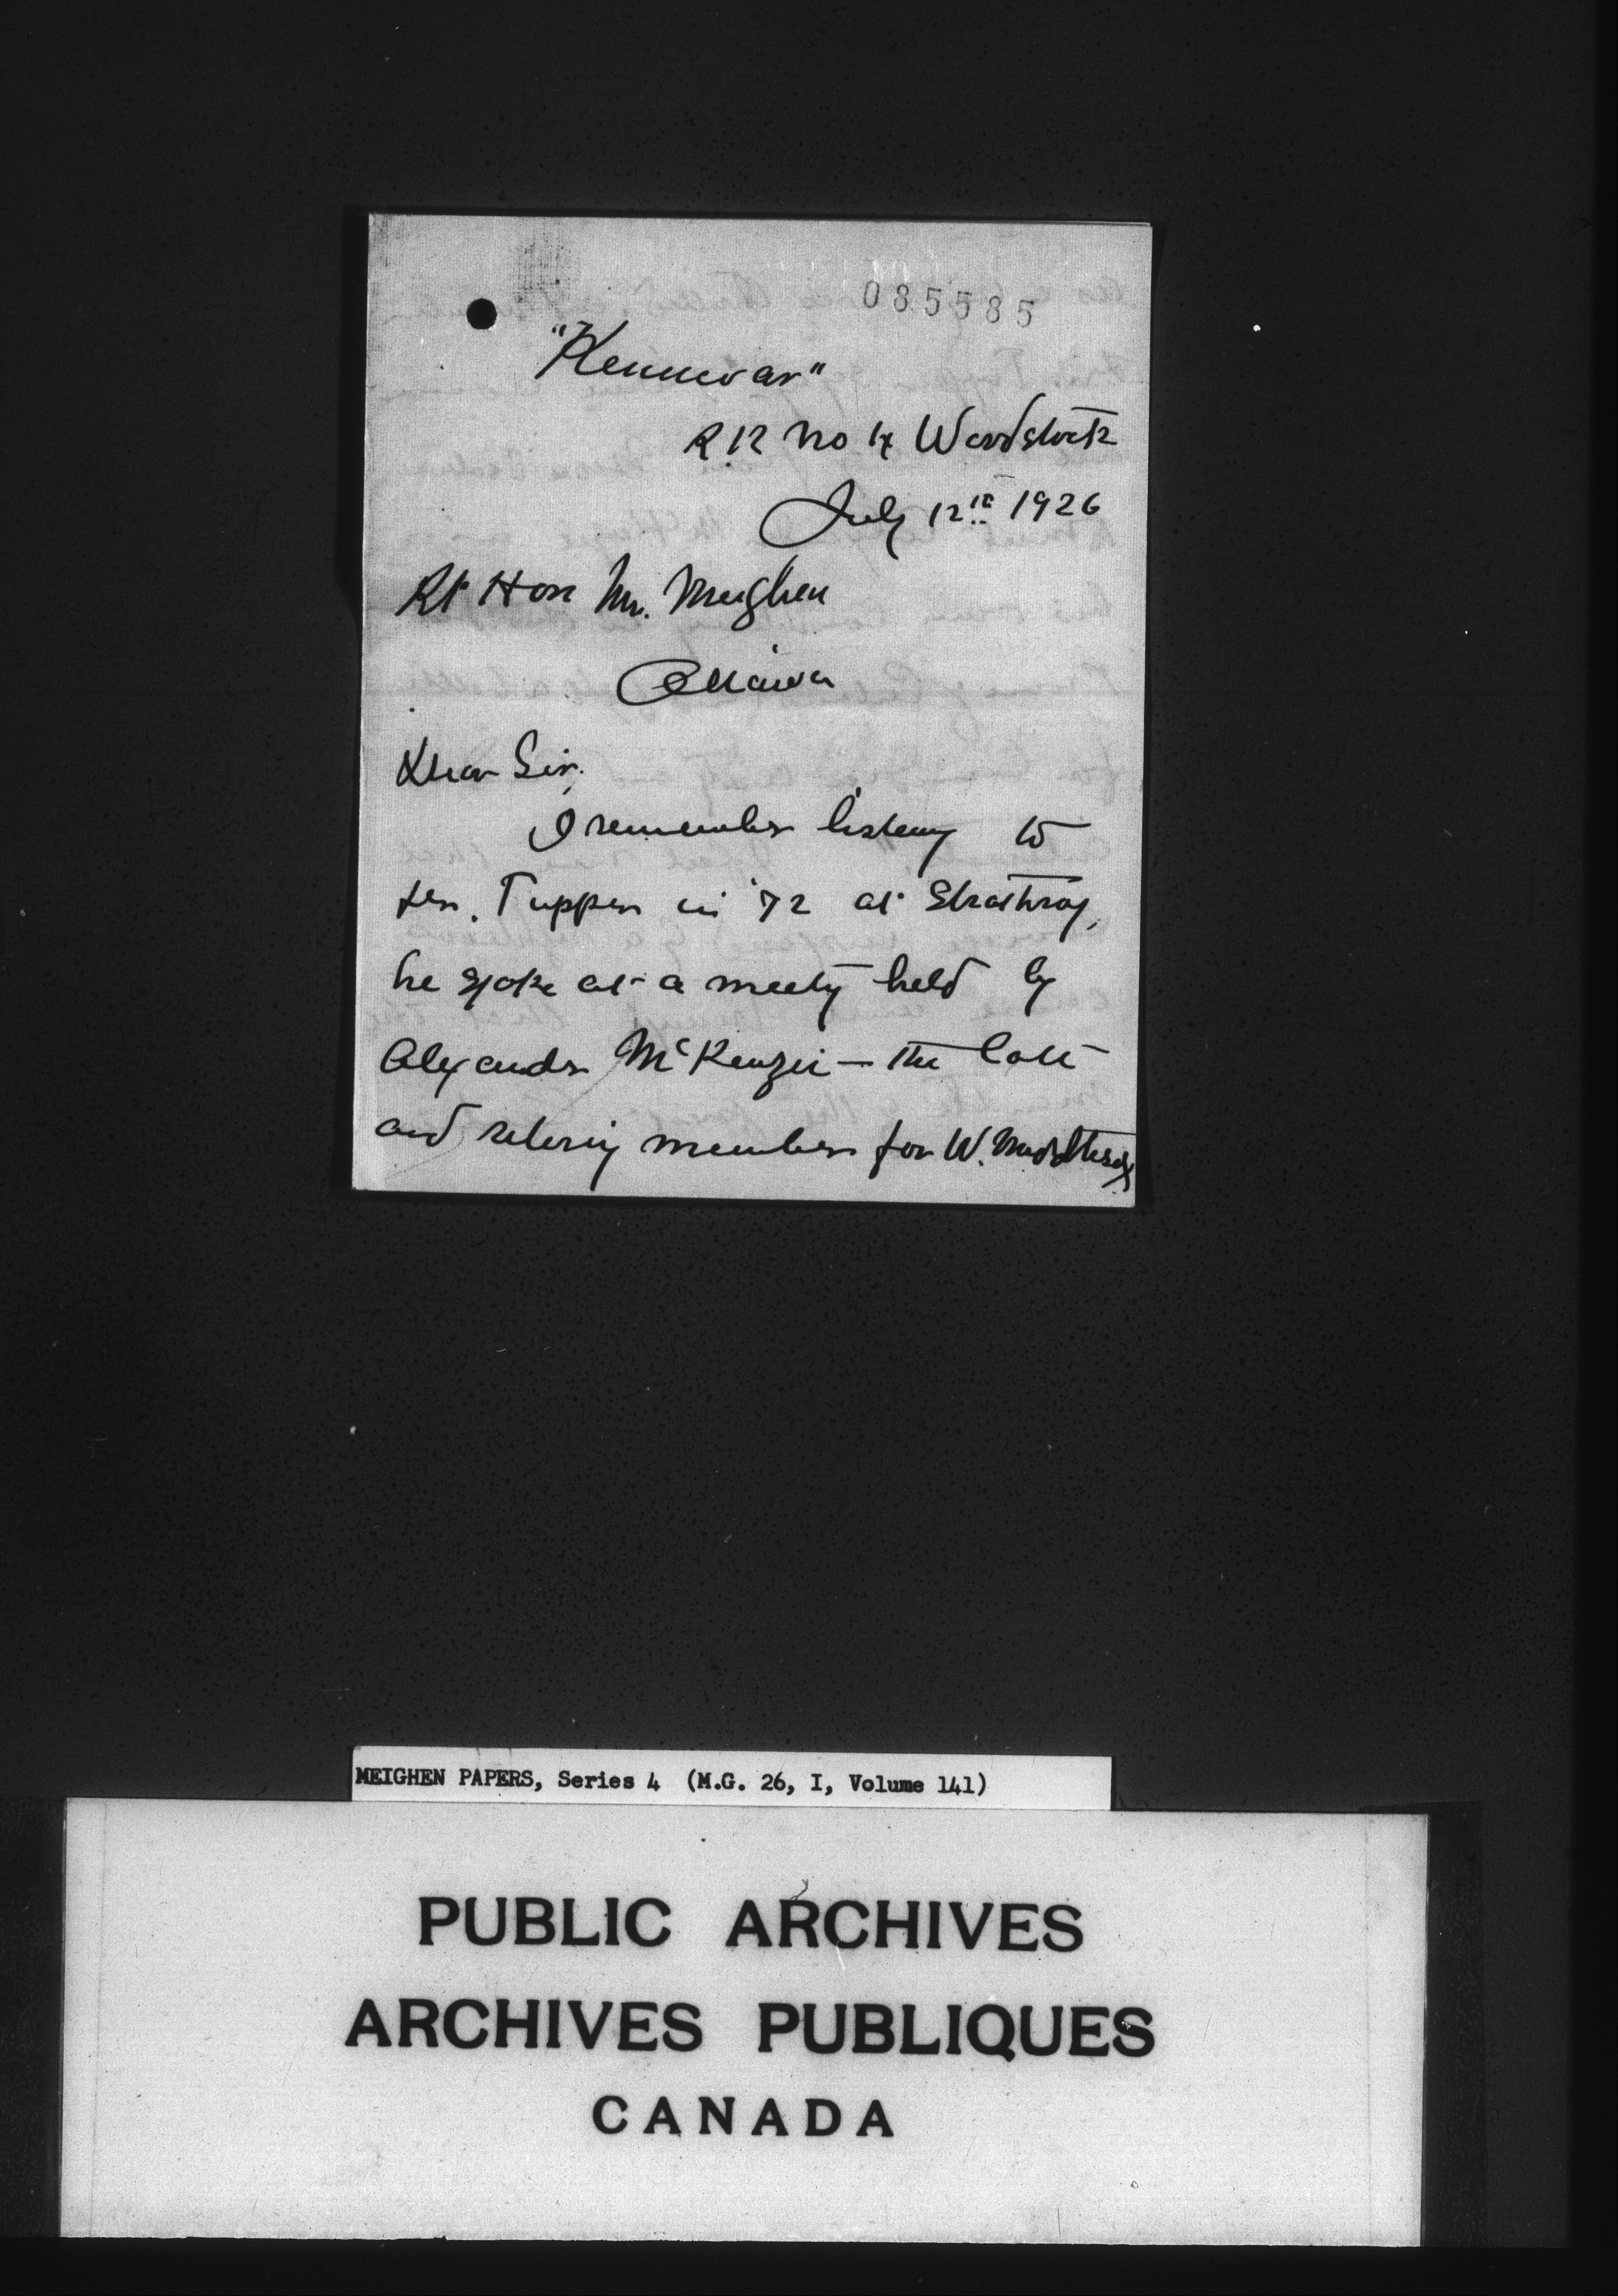 085585
R R No 4 Woodstock
July 12th 1926
Rt Hon Mr. Meighen
Ottawa
Dear Sir.
I remember listening to
Tupper in '72 at Strathroy,
he spoke at a meeting held by
Alexander McKenzie — the late
and retiring member for W. Middlesex
MEIGHEN PAPERS, Series 4 (M.G. 26, I, Volume 141)
PUBLIC ARCHIVES
ARCHIVES PUBLIQUES
CANADA